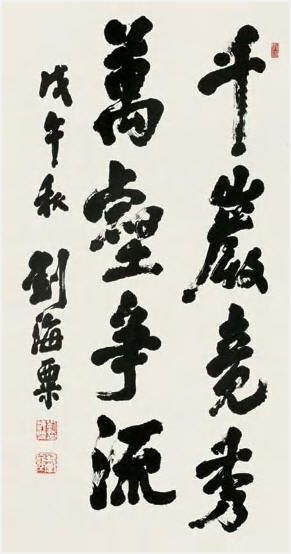 千巖竞秀
萬壑争流
戊午秋 劉海粟